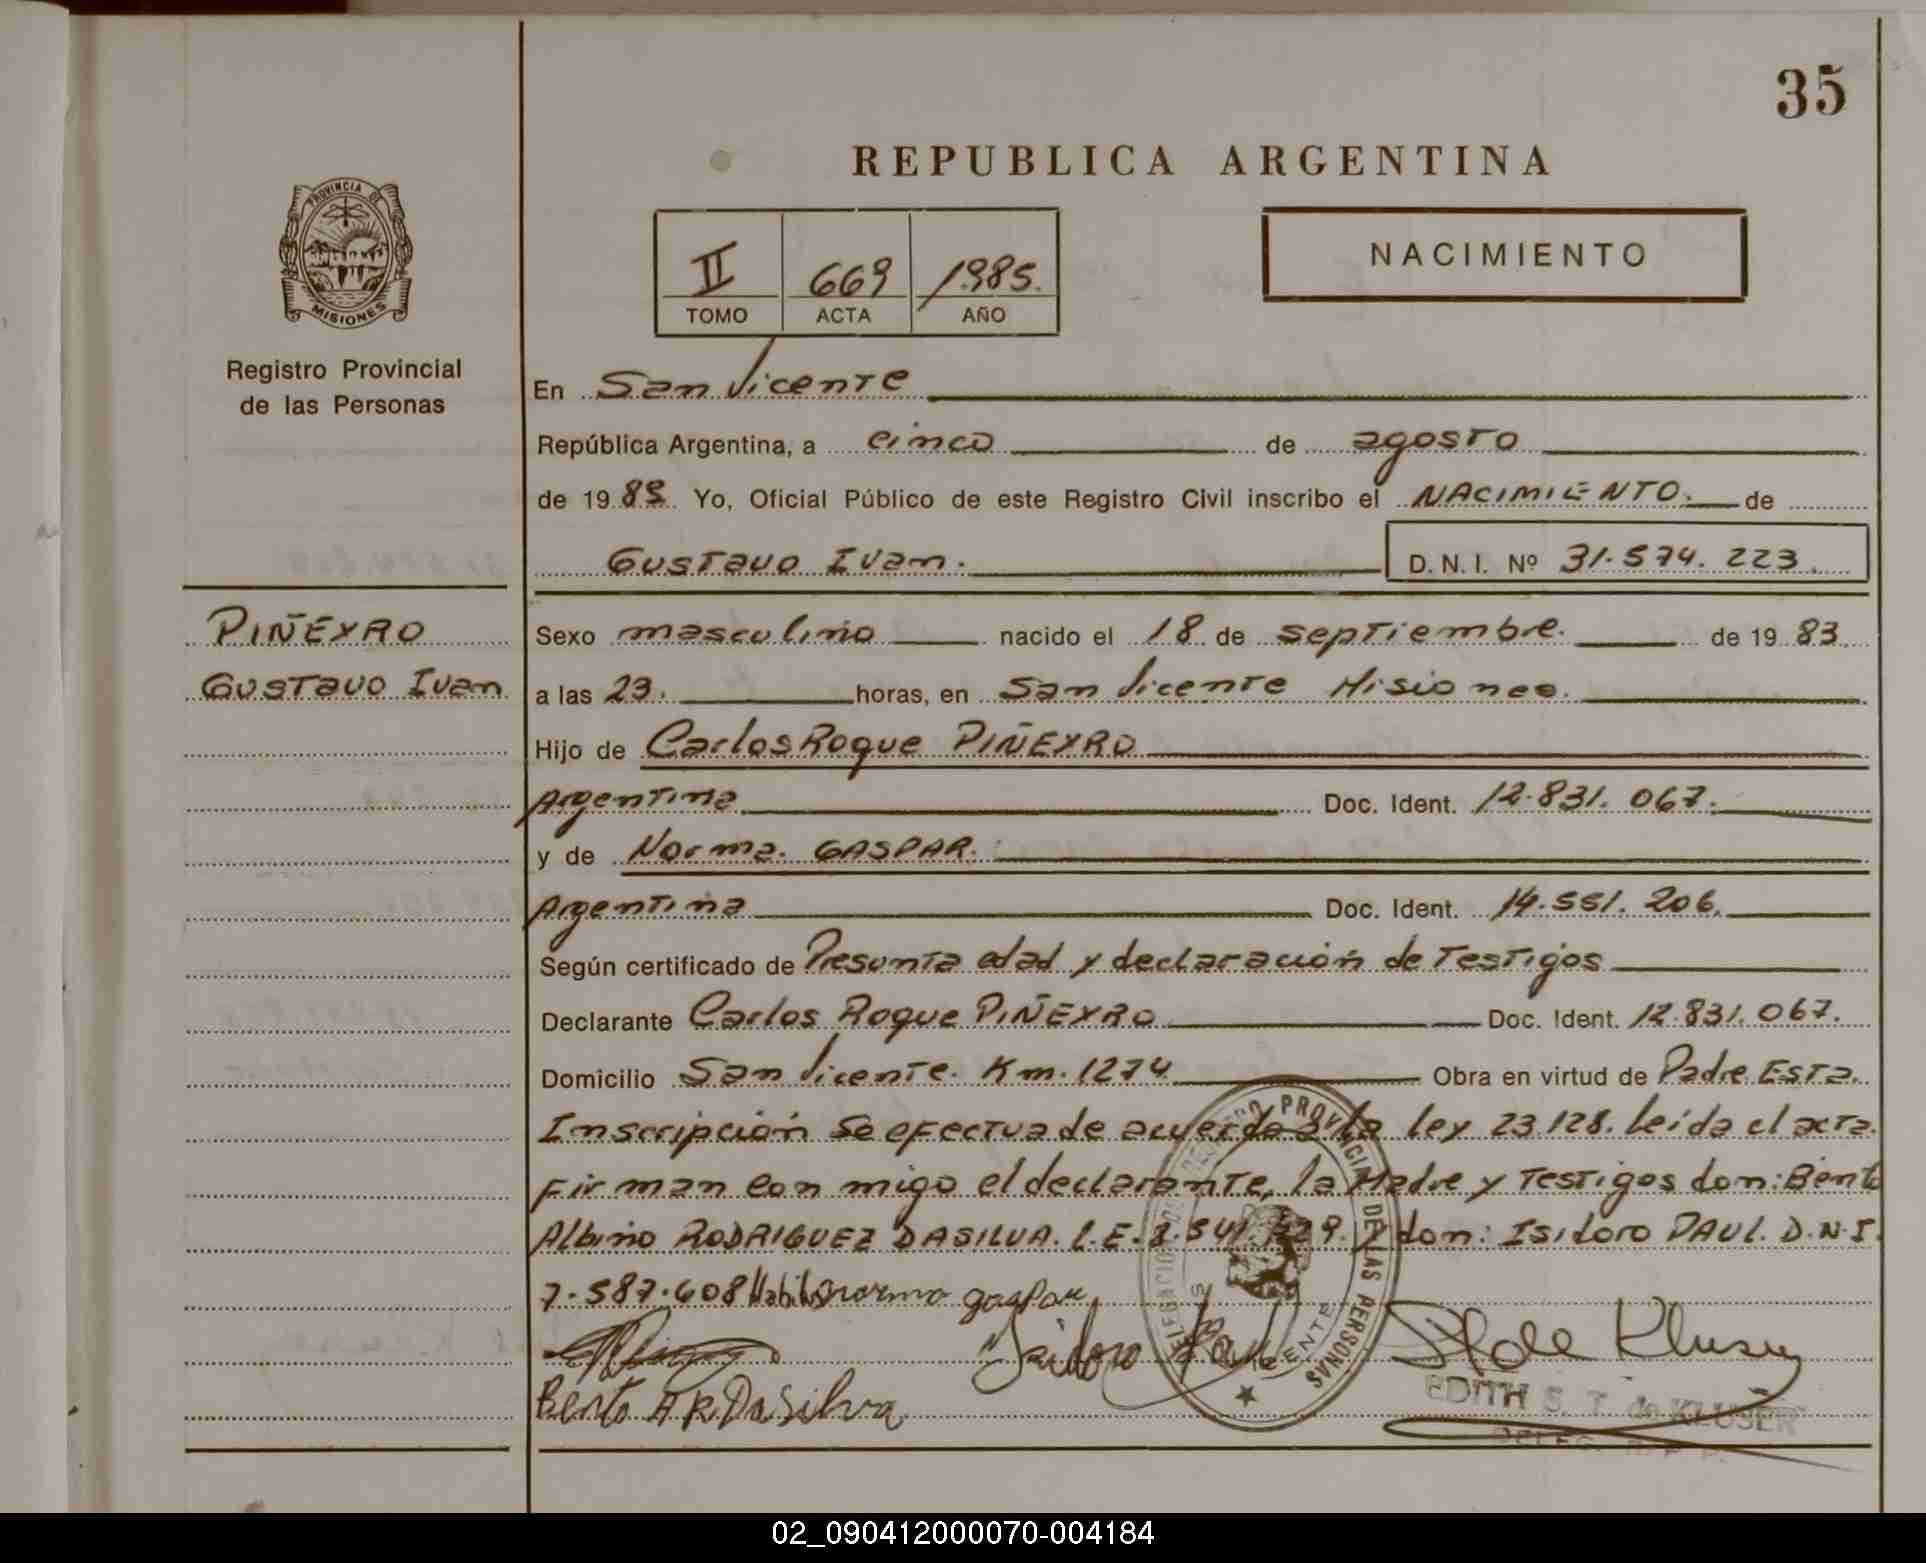 35
REPUBLICA ARGENTINA
PROVINCIA DE
MISIONES
II 669 1985.
TOMO ACTA AÑO
NACIMIENTO
Registro Provincial
de las Personas
En San Vicente
República Argentina, a cinco de agosto
de 19 85 Yo, Oficial Público de este Registro Civil inscribo el NACIMIENTO. de
Gustavo Ivan. D. N. I. Nº 31.574.223.
PIÑEYRO
Gustavo Ivan
Sexo masculino nacido el 18 de septiembre. de 19 83
a las 23. horas, en San Vicente Misiones.
Hijo de Carlos Roque PIÑEYRO
Argentina Doc. Ident. 12.831.067.
y de Norma. GASPAR.
Argentina Doc. Ident. 14.551.206.
Según certificado de Presunta edad y declaración de Testigos
Declarante Carlos Roque PIÑEYRO Doc. Ident. 12.831.067.
Domicilio San Vicente. Km. 1274 Obra en virtud de Padre. Esta.
Inscripción se efectua de acuerdo a la ley 23.128. Leída el acta.
Firman con migo el declarante, la Madre y Testigos don: Bento
Albino RODRIGUEZ DASILVA. L.E. y don: Isidoro PAUL. D.N.I.
7.587.608 Habiles norma gaspar
Isidoro Paul
Bento A R. Da Silva
REGISTRO PROVINCIAL DE LAS PERSONAS
EDITH S. T. de KLUSER
DELEG. R. P. P.
02_090412000070-004184